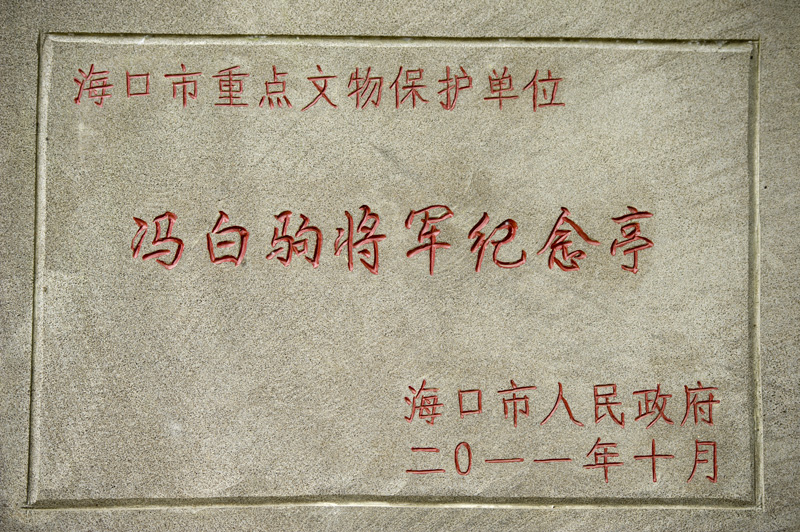 海口市重点文物保护单位
冯白驹将军纪念亭
海口市人民政府
二0一一年十月